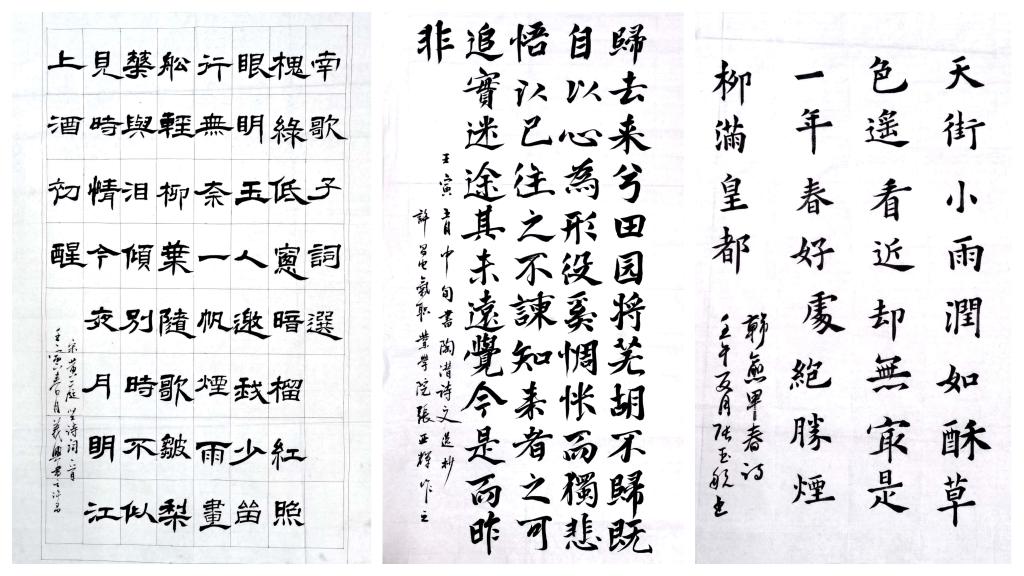 南歌子詞選
槐綠低窻暗榴紅照
眼明玉人邀我少留
行無奈一帆煙雨畫
船輕柳葉隨歌皺梨
藥與泪傾别時不似
見時情今夜月明江
上酒初醒
宋黄庭堅诗詞一首
壬寅春月義興書于許昌
歸去来兮田园将芜胡不歸既
自以心為形役奚惆怅而獨悲
悟以已往之不諫知来者之可
追實迷途其未遠覺今是而昨
非
壬寅五月中旬書陶潜诗文选抄
許昌电氣职業學院張亚辉作之
天街小雨潤如酥草
色遥看近却無冣是
一年春好處絕勝煙
柳滿皇都
韓愈早春诗
壬午夏月张玉航书